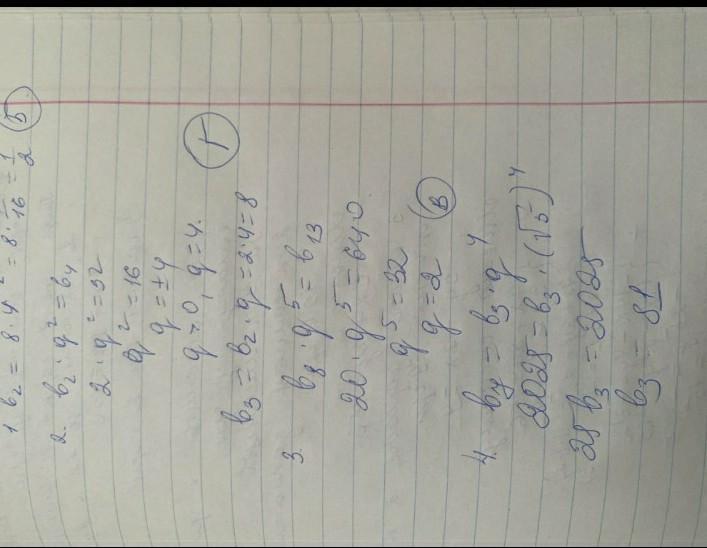 1 b₂ = 8 · 4⁻² = 8 · 1/16 = 1/2 Б
2. b₂ · q² = b₄
2 · q² = 32
q² = 16
q = ±4
q > 0, q = 4.
b₃ = b₂ · q = 2 · 4 = 8 Г
3. b₈ · q⁵ = b₁₃
20 · q⁵ = 640.
q⁵ = 32
q = 2 В
4. b₇ = b₃ · q⁴
2025 = b₃ · (√5)⁴
25 b₃ = 2025
b₃ = 81